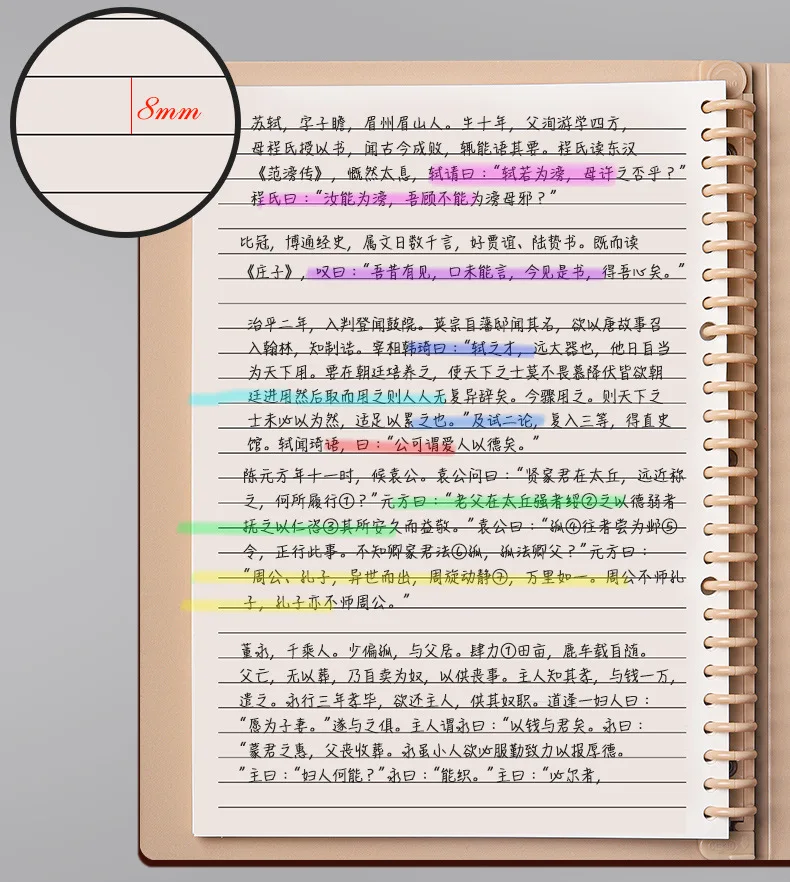 8mm
苏轼，字子瞻，眉州眉山人。生十年，父洵游学四方，
母程氏授以书，闻古今成败，辄能语其要。程氏读东汉
《范滂传》，慨然太息，轼请曰：“轼若为滂，母许之否乎？”
程氏曰：“汝能为滂，吾顾不能为滂母邪？”
比冠，博通经史，属文日数千言，好贾谊、陆贽书。既而读
《庄子》，叹曰：“吾昔有见，口未能言，今见是书，得吾心矣。”
治平二年，入判登闻鼓院。英宗自藩邸闻其名，欲以唐故事召
入翰林，知制诰。宰相韩琦曰：“轼之才，远大器也，他日自当
为天下用。要在朝廷培养之，使天下之士莫不畏慕降伏皆欲朝
廷进用然后取而用之则人人无复异辞矣。今骤用之。则天下之
士未必以为然，适足以累之也。”及试二论，复入三等，得直史
馆。轼闻琦语，曰：“公可谓爱人以德矣。”
陈元方年十一时，候袁公。袁公问曰：“贤家君在太丘，远近称
之，何所履行①？”元方曰：“老父在太丘强者绥②之以德弱者
抚之以仁恣③其所安久而益敬。”袁公曰：“孤④往者尝为邺⑤
令，正行此事。不知卿家君法⑥孤，孤法卿父？”元方曰：
“周公、孔子，异世而出，周旋动静⑦，万里如一。周公不师孔
子，孔子亦不师周公。”
董永，千乘人。少偏孤，与父居。肆力①田亩，鹿车载自随。
父亡，无以葬，乃自卖为奴，以供丧事。主人知其孝，与钱一万，
遣之。永行三年孝毕，欲还主人，供其奴职。道逢一妇人曰：
“愿为子妻。”遂与之俱。主人谓永曰：“以钱与君矣。永曰：
“蒙君之惠，父丧收葬。永虽小人欲必服勤致力以报厚德。
”主曰：“妇人何能？”永曰：“能织。”主曰：“必尔者，